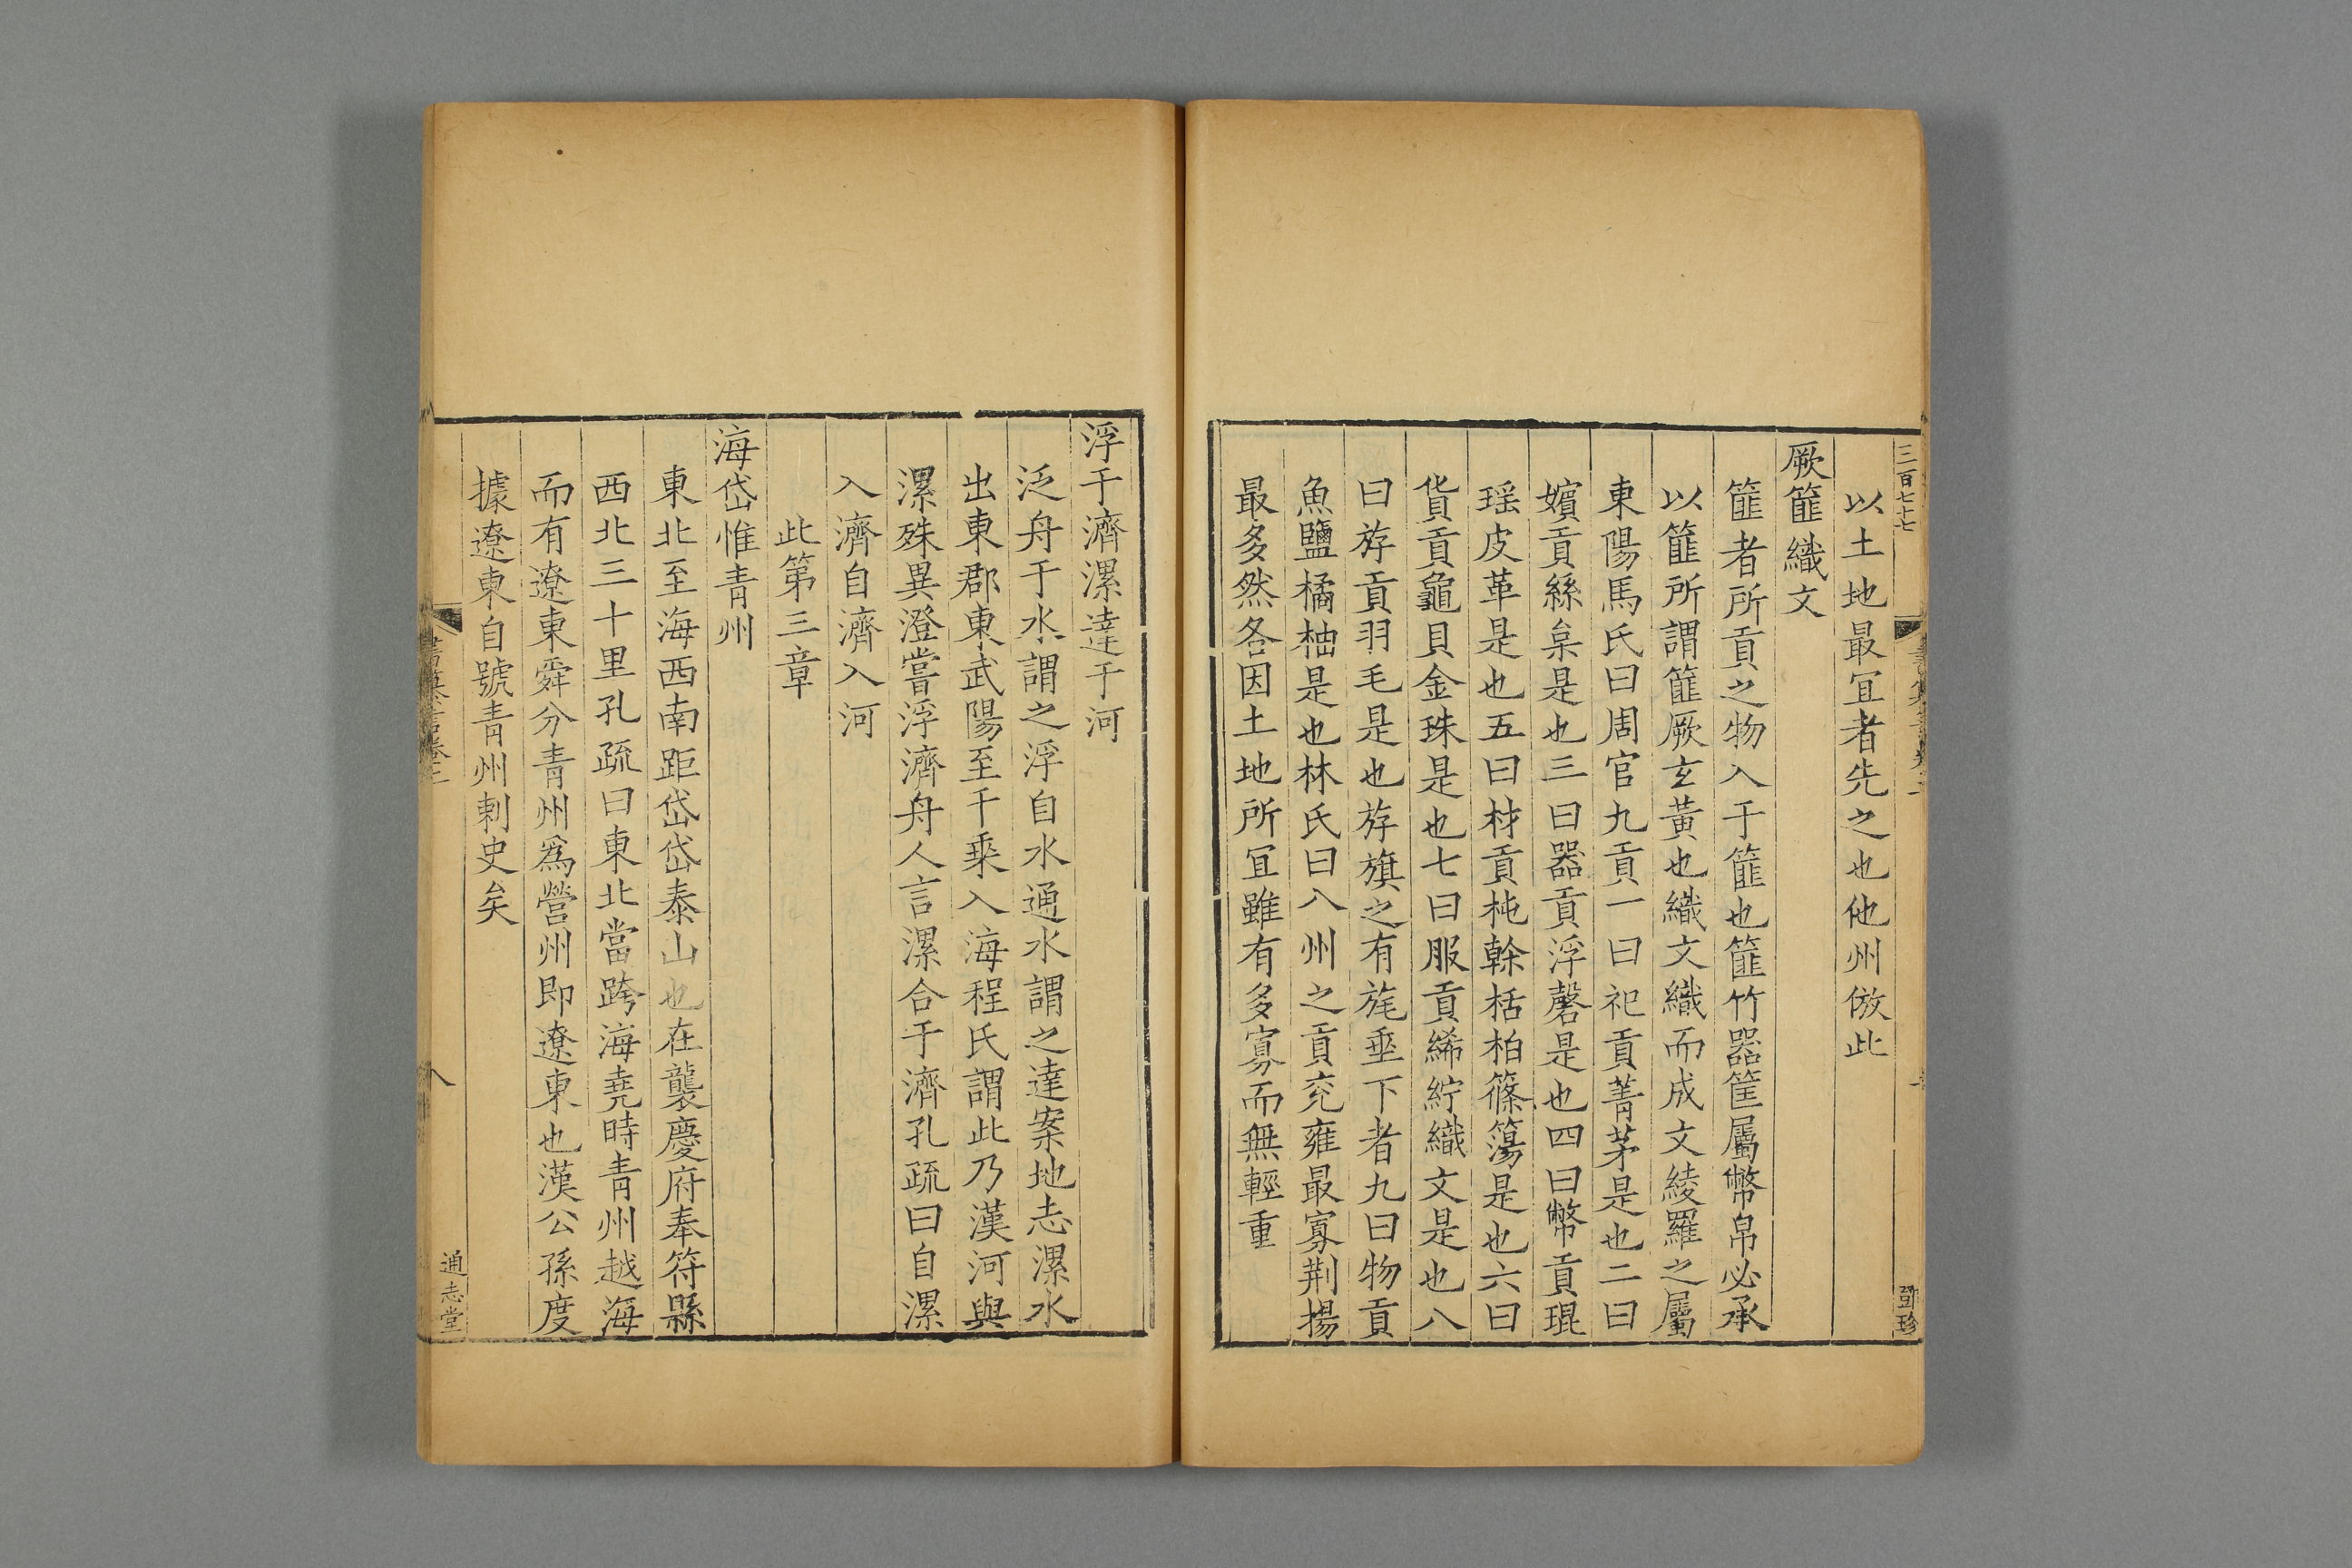 三百七十七
以土地最冝者先之也他州倣此
厥篚織文
篚者所貢之物入于篚也篚竹器筐屬幣帛必承
以篚所謂篚厥玄黄也織文織而成文綾羅之屬
東陽馬氏曰周官九貢一曰祀貢菁茅是也二曰
嬪貢絲枲是也三曰器貢浮磬是也四曰幣貢琨
瑶皮革是也五曰材貢杶榦栝柏篠簜是也六曰
貨貢龜貝金珠是也七曰服貢絺紵織文是也八
曰斿貢羽毛是也斿旗之有旄垂下者九曰物貢
魚鹽橘柚是也林氏曰八州之貢兖雍最寡荆揚
最多然各因土地所冝雖有多寡而無輕重
浮于濟漯達于河
泛舟于水謂之浮自水通水謂之達案地志漯水
出東郡東武陽至千乘入海程氏謂此乃漢河與
漯殊異澄嘗浮濟舟人言漯合于濟孔疏曰自漯
入濟自濟入河
此第三章
海岱惟青州
東北至海西南距岱岱泰山也在襲慶府奉符縣
西北三十里孔疏曰東北當跨海堯時青州越海
而有遼東舜分青州爲營州即遼東也漢公孫度
據遼東自號青州刺史矣
書纂言卷二
八
通志堂